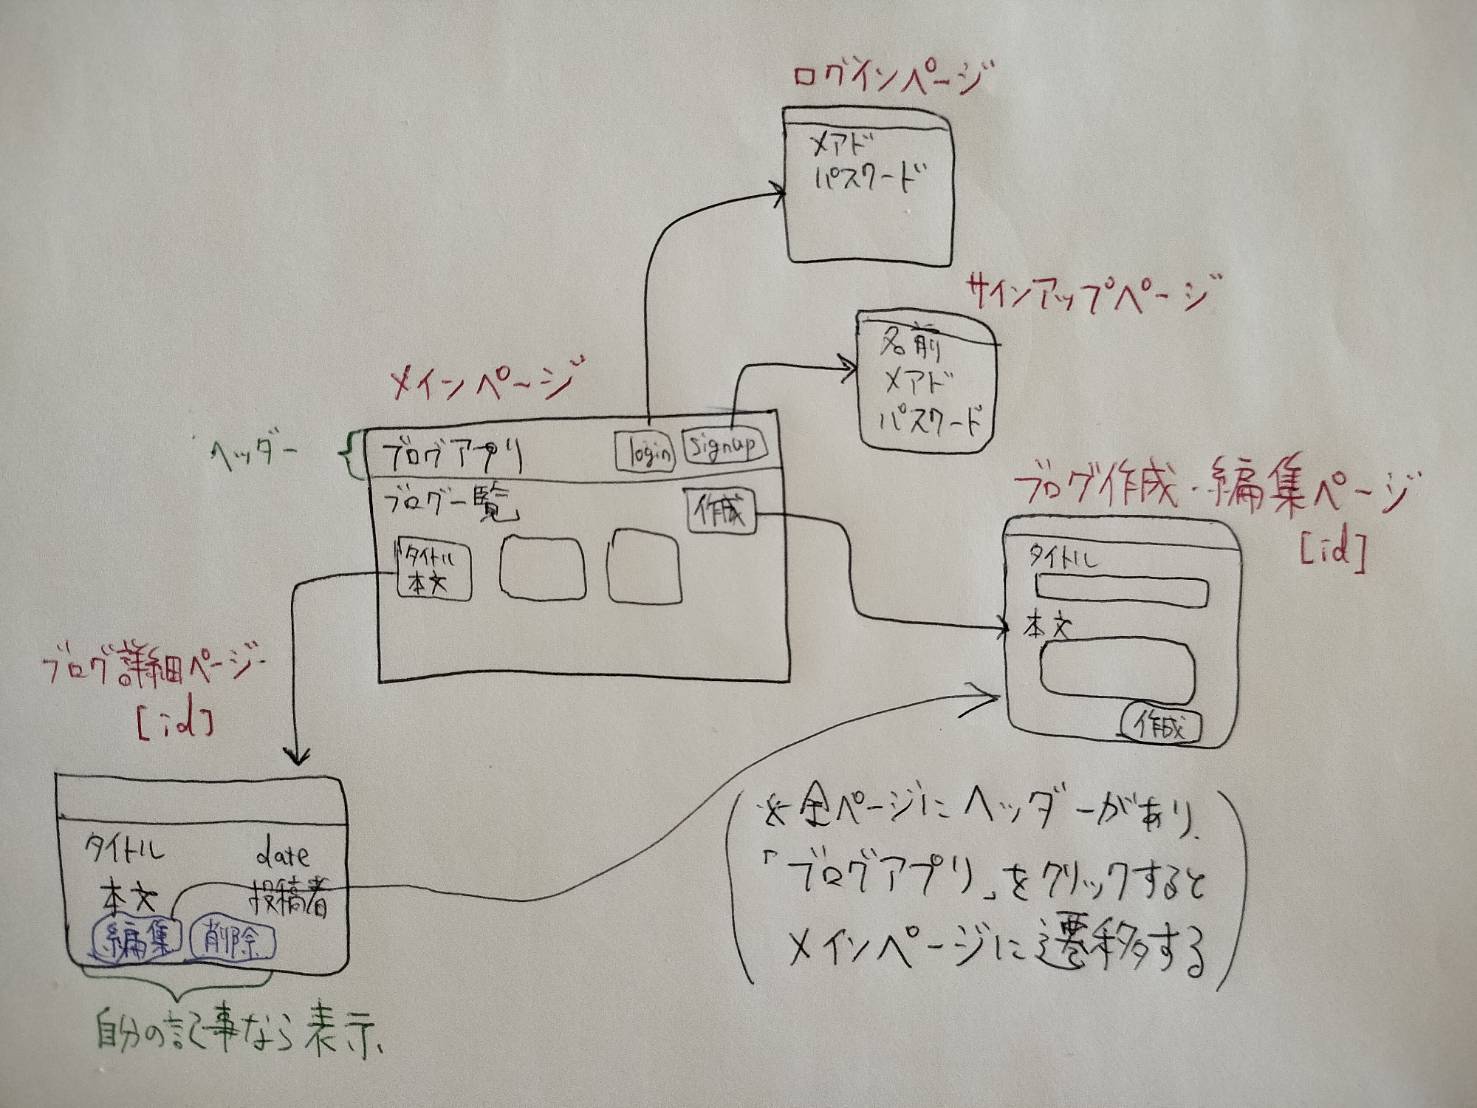 ログインページ
メアド
パスワード
サインアップページ
名前
メアド
パスワード
メインページ
ヘッダー
ブログアプリ
login
signup
ブログ一覧
作成
タイトル
本文
ブログ作成・編集ページ
[id]
タイトル
本文
作成
ブログ詳細ページ
[id]
タイトル
date
本文
投稿者
編集
削除
自分の記事なら表示、
※全ページにヘッダーがあり、
「ブログアプリ」をクリックすると
メインページに遷移する